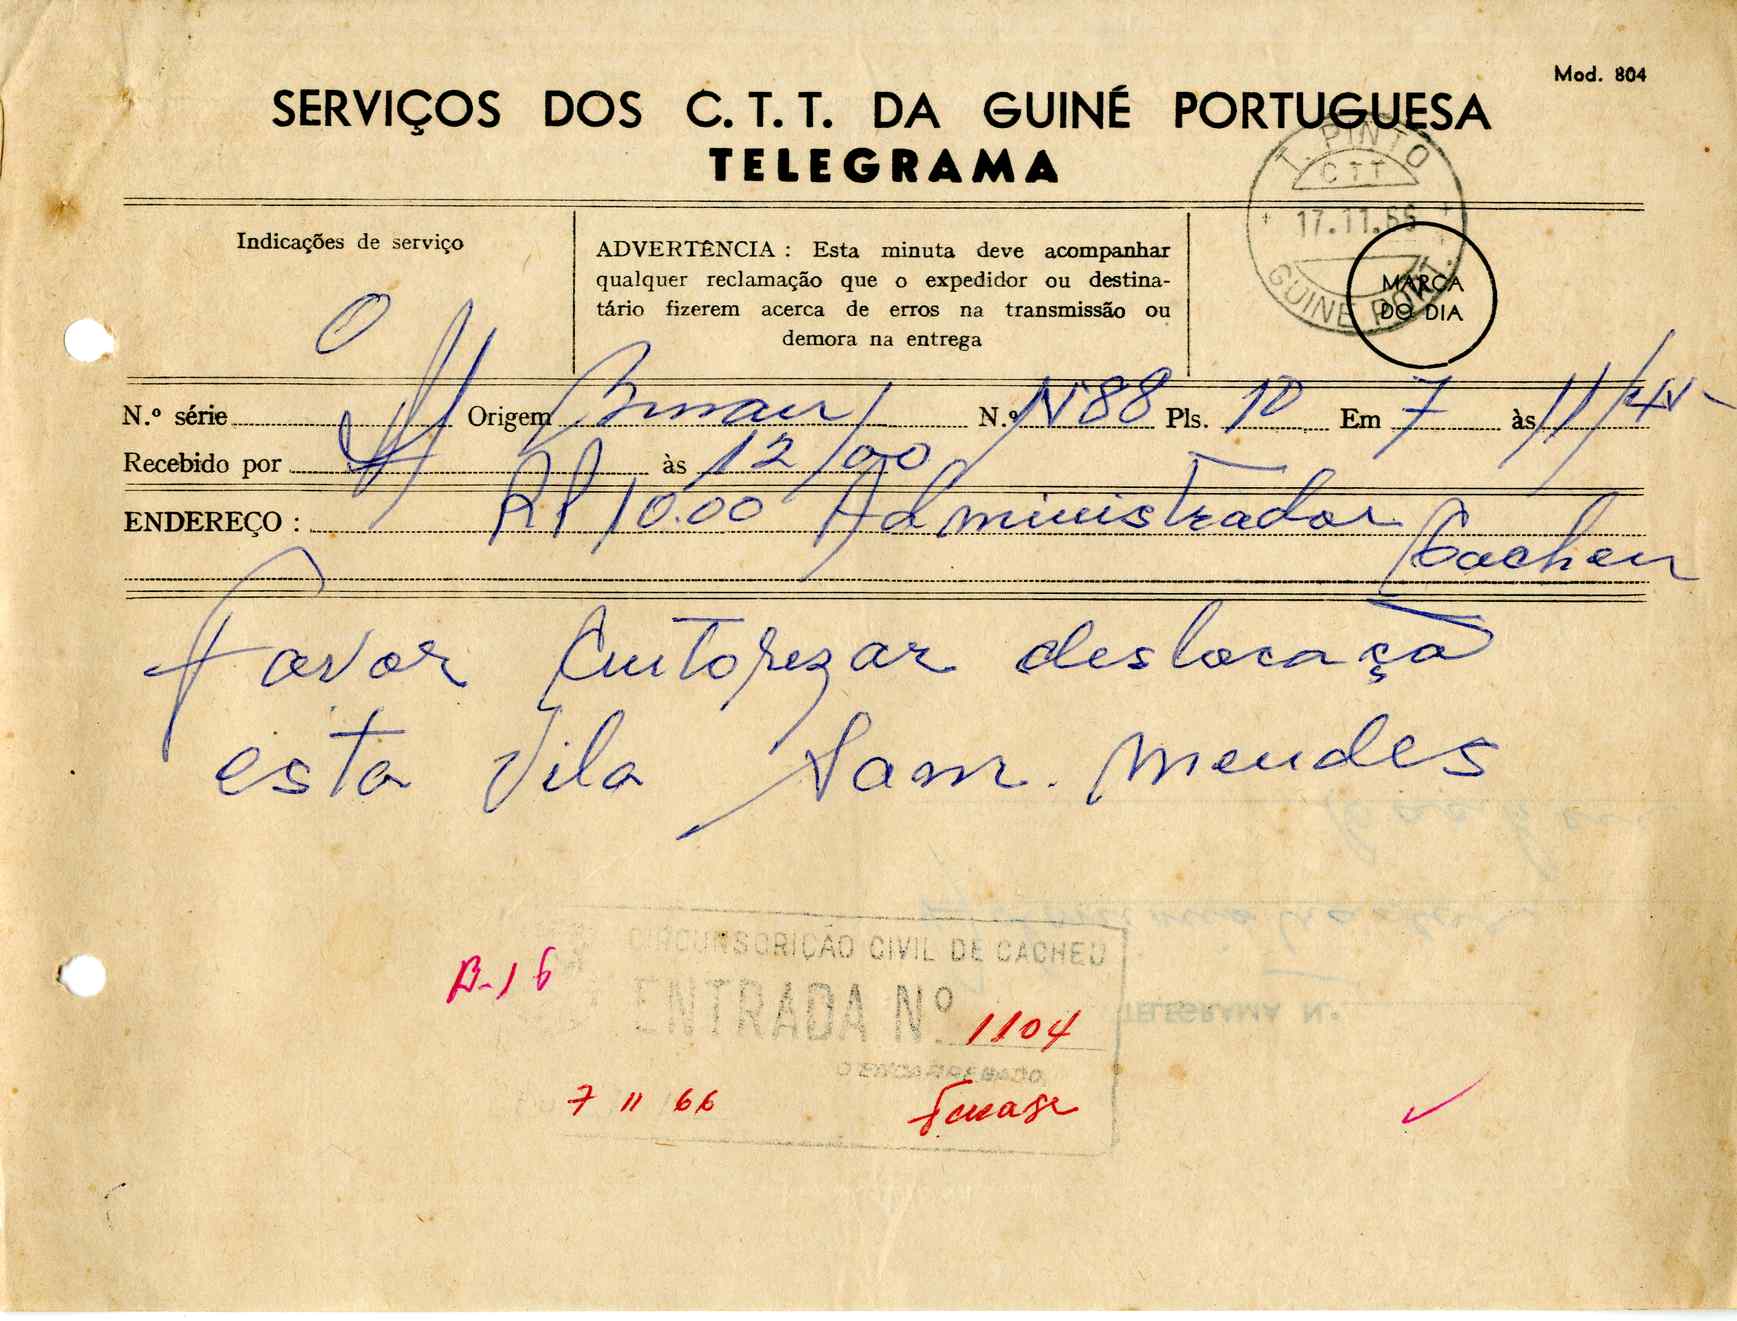 Mod. 804
SERVIÇOS DOS C. T. T. DA GUINÉ PORTUGUESA
TELEGRAMA
T. PINTO
CTT
17.11.66
GUINÉ PORT.
MARCA
DO DIA
Indicações de serviço
ADVERTÊNCIA : Esta minuta deve acompanhar
qualquer reclamação que o expedidor ou destina-
tário fizerem acerca de erros na transmissão ou
demora na entrega
N.º série Origem Bissau N.º N88 Pls. 10 Em 7 às 11/45
Recebido por às 12/00
ENDEREÇO : RP 10.00 Administrador
Cacheu
Favor Autorezar deslocaçã
esta Vila Sam. Mendes
CIRCUNSCRIÇÃO CIVIL DE CACHEU
B-16
ENTRADA Nº 1104
O ENCARREGADO
7 11 66
TELEGRAMA N.º